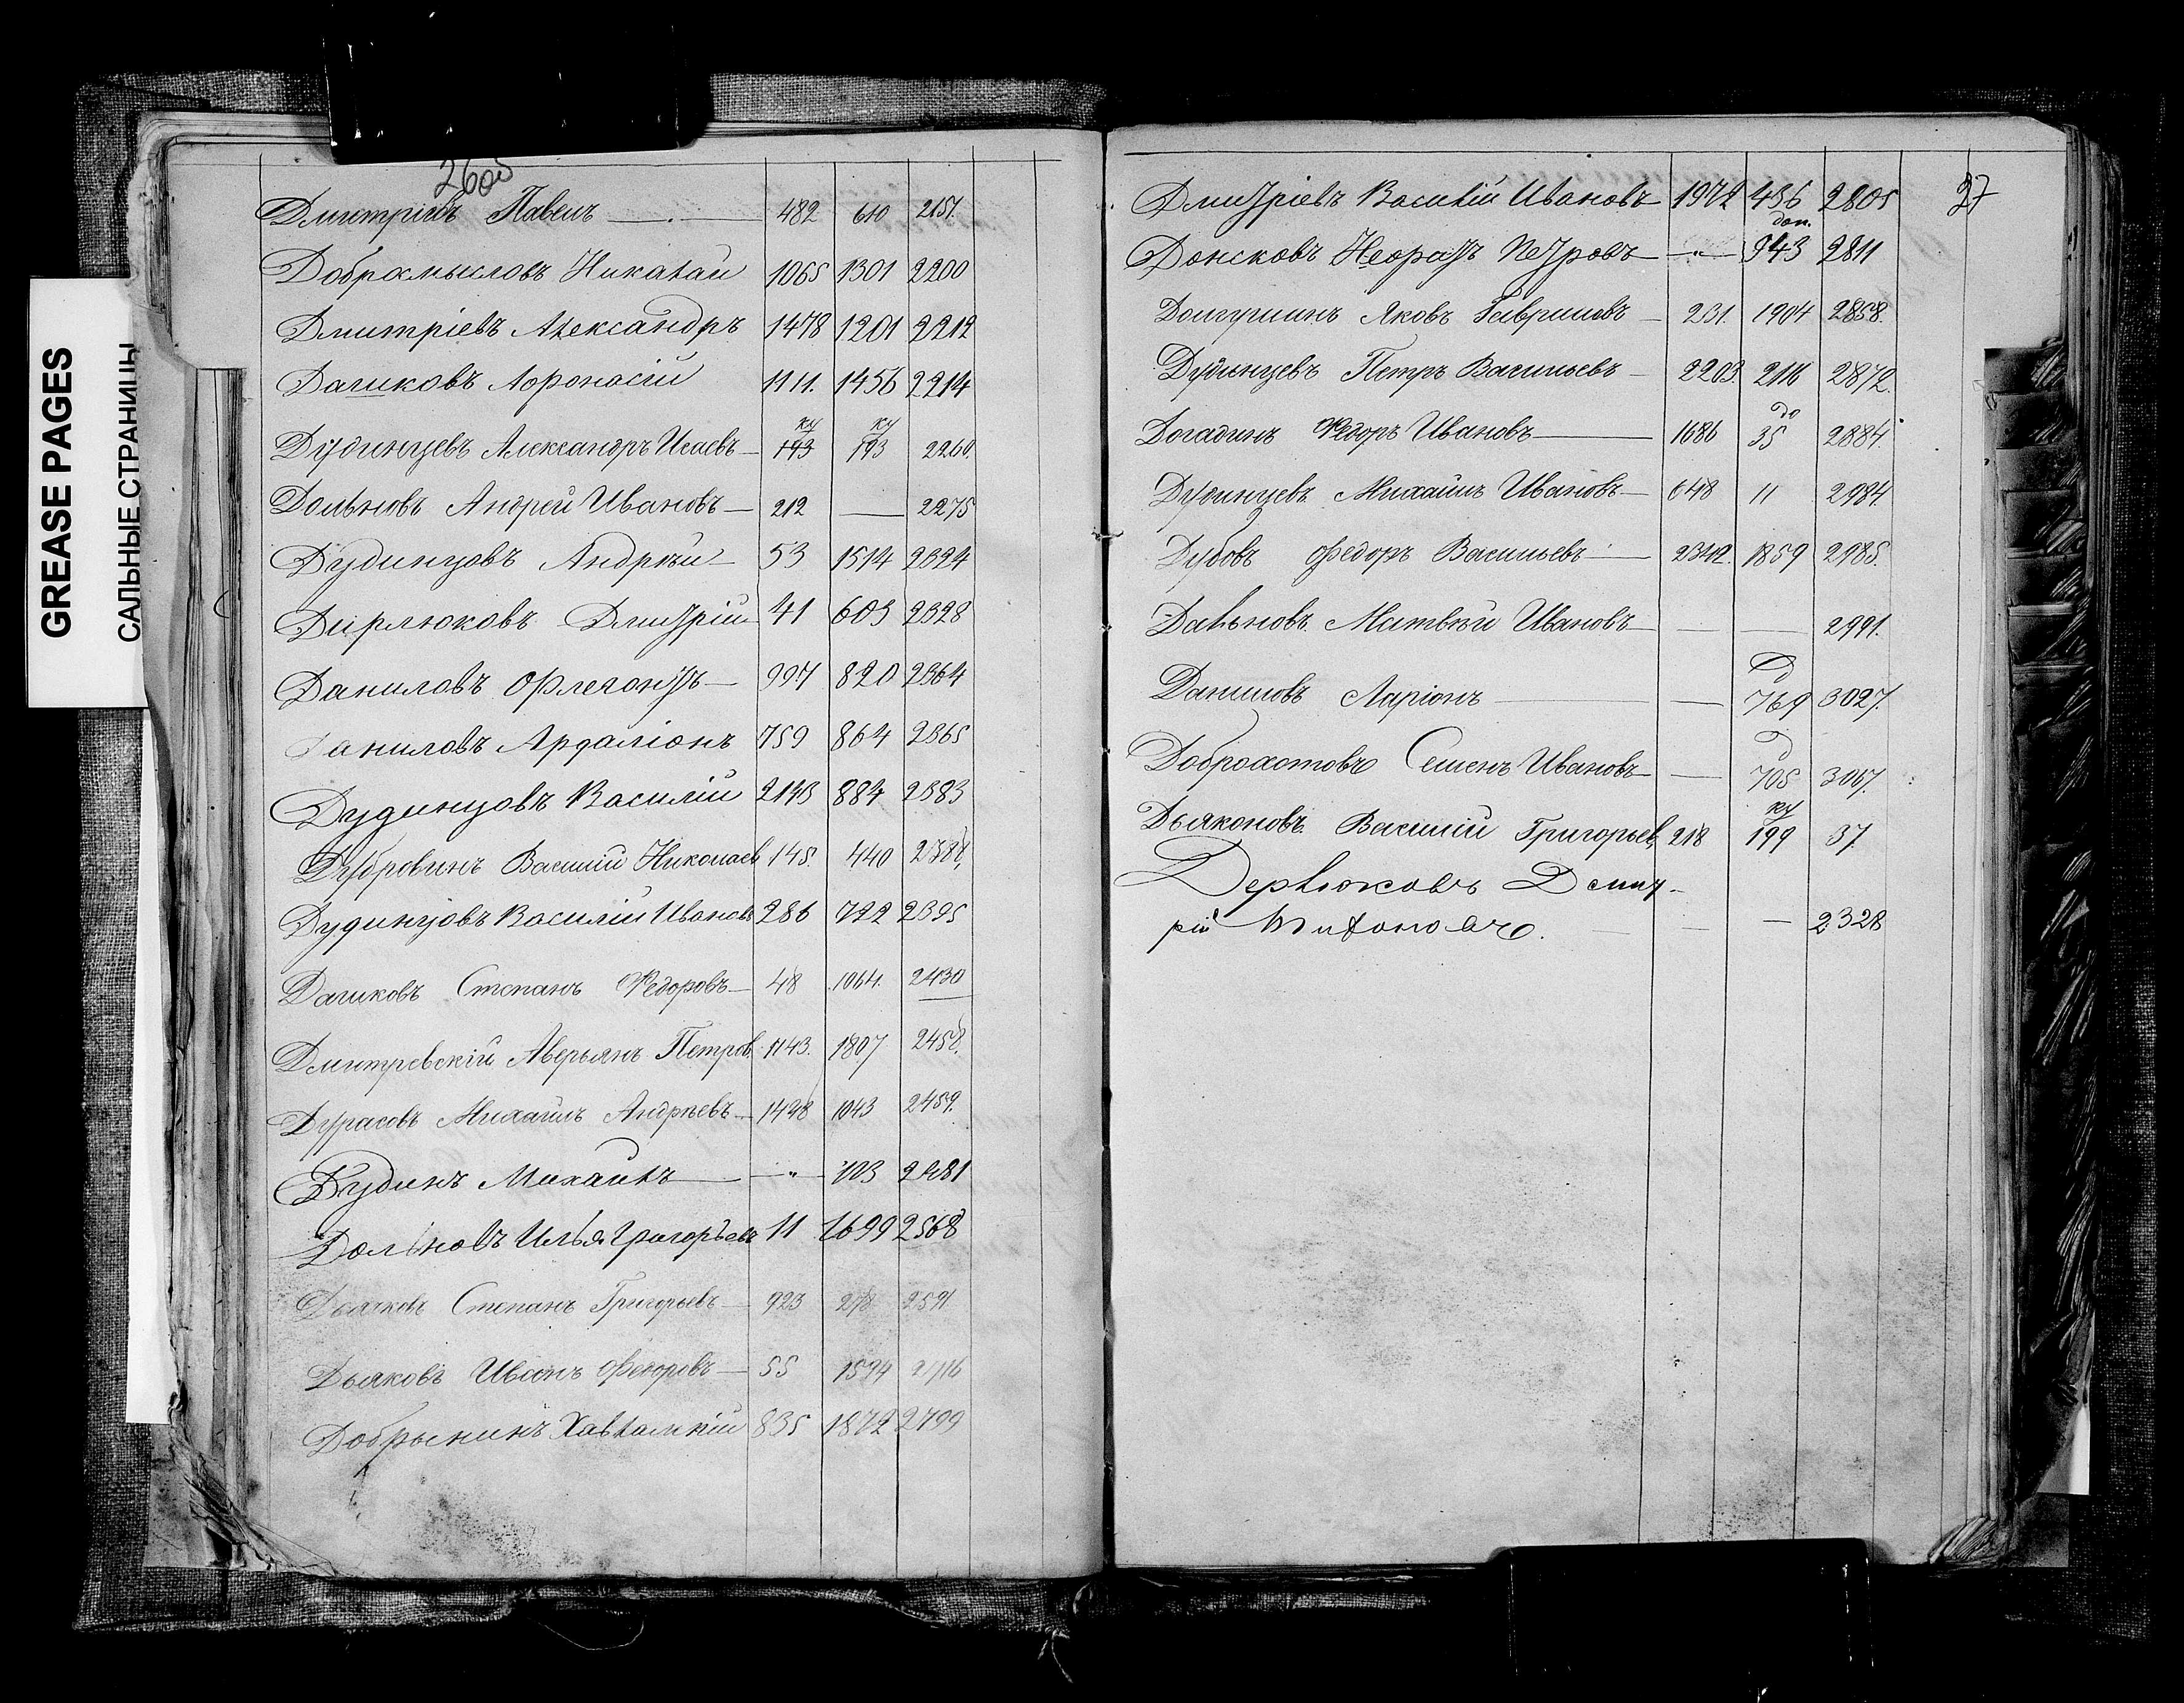 GREASE PAGES
САЛЬНЫЕ СТРАНИЦЫ
Дмитріевъ Павелъ — 482 610 2151.
Добромысловъ Николай 1065 1301 2200
Дмитріевъ Александръ 1478 1201 2212
Дашковъ Афонасій 1111. 1456 2214
ку ку
Дудинцевъ Александръ Исаевъ — 193 193 2260.
Дольновъ Андрей Ивановъ — 212 — 2275
Дудинцовъ Андрѣй — 53 1514 2324
Дирлюковъ Дмитрій 41 603 2328
Даниловъ Флегонтъ — 997 820 2364
Даниловъ Ардаліонъ 759 864 2365
Дудинцовъ Василій 2143 884 2383
Дубровинъ Василій Николаев 145. 440
Дудинцовъ Василій Ивановъ 286 722 2395
Дашковъ Степанъ Федоровъ — 48 1064. 2430
Дмитревскій Аверьянъ Петров. 1143. 1807 2458.
Дурасовъ Михаилъ Андреевъ — 1448 1043 2459.
Дудинъ Михаилъ — „ — 703 2481
Дольновъ Илья Григорьевъ 11 1699 2568
Дьячковъ Степанъ Григорьевъ — 923 278 2591
Дьяковъ Иванъ Федоровъ — 55 1594 2716
Добрынинъ 835 1872 2799
Дмитріевъ Василій Ивановъ 1972 436 2805 27
доп.
Донсковъ Неофитъ Петровъ — „ — 943 2811
Долгушинъ Яковъ Гавриловъ — 231. 1904 2858.
Дудинцевъ Петръ Васильевъ — 2203. 2116 2872.
до
Догадинъ Федоръ Ивановъ — 1686 35 2884.
Дудинцевъ Михаилъ Ивановъ — 648 11 2984.
Дубовъ Федоръ Васильевъ — 2342. 1859 2985.
Дальновъ Матвѣй Ивановъ — — — 2991.
Д
Даниловъ Ларіонъ — — 769 3027.
Д
Доброхотовъ Семенъ Ивановъ — — 705 3067.
ку
Дьяконовъ Василій Григорьев. 218 199 37.
Дерлюковъ Дмит-
рій — — — 2328